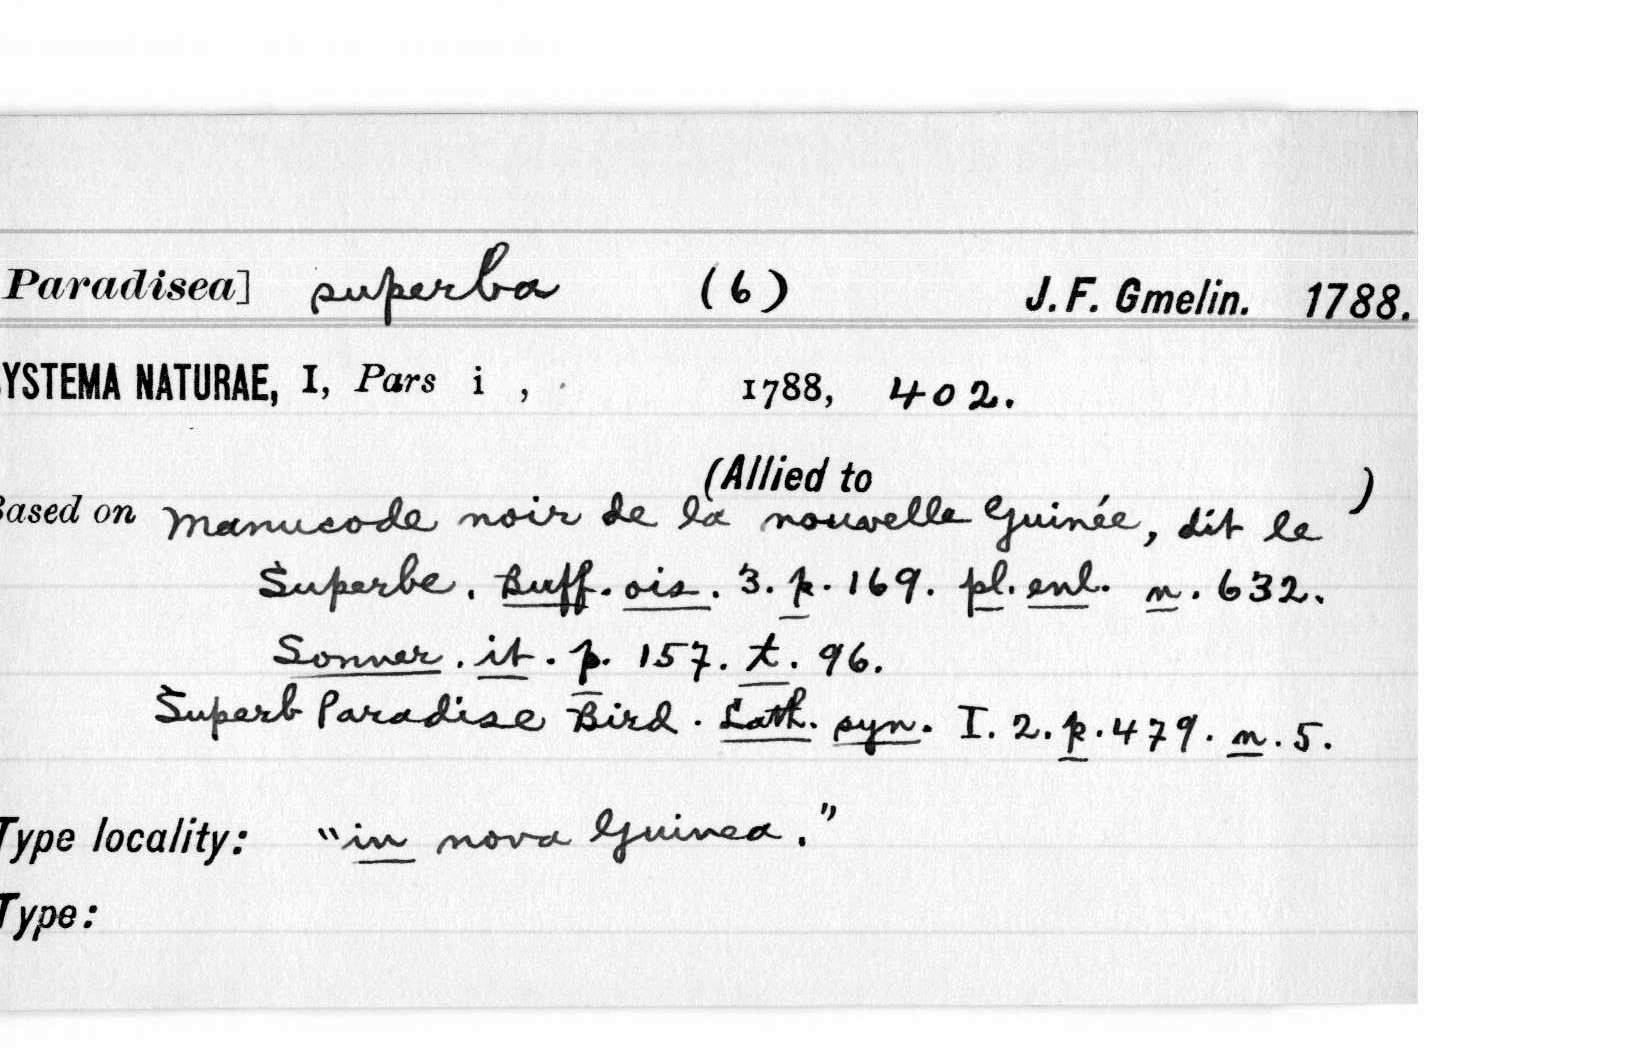 Paradisea] superba (6) J. F. Gmelin. 1788.
YSTEMA NATURAE, I, Pars i , 1788, 402.
(Allied to )
Based on Manucode noir de la nouvelle Guinée, dit le
Superbe. Buff. ois. 3. p. 169. pl. enl. n. 632.
Sonner. it. p. 157. t. 96.
Superb Paradise Bird. Lath. syn. I. 2. p. 479. n. 5.
Type locality: "in nova Guinea."
Type: